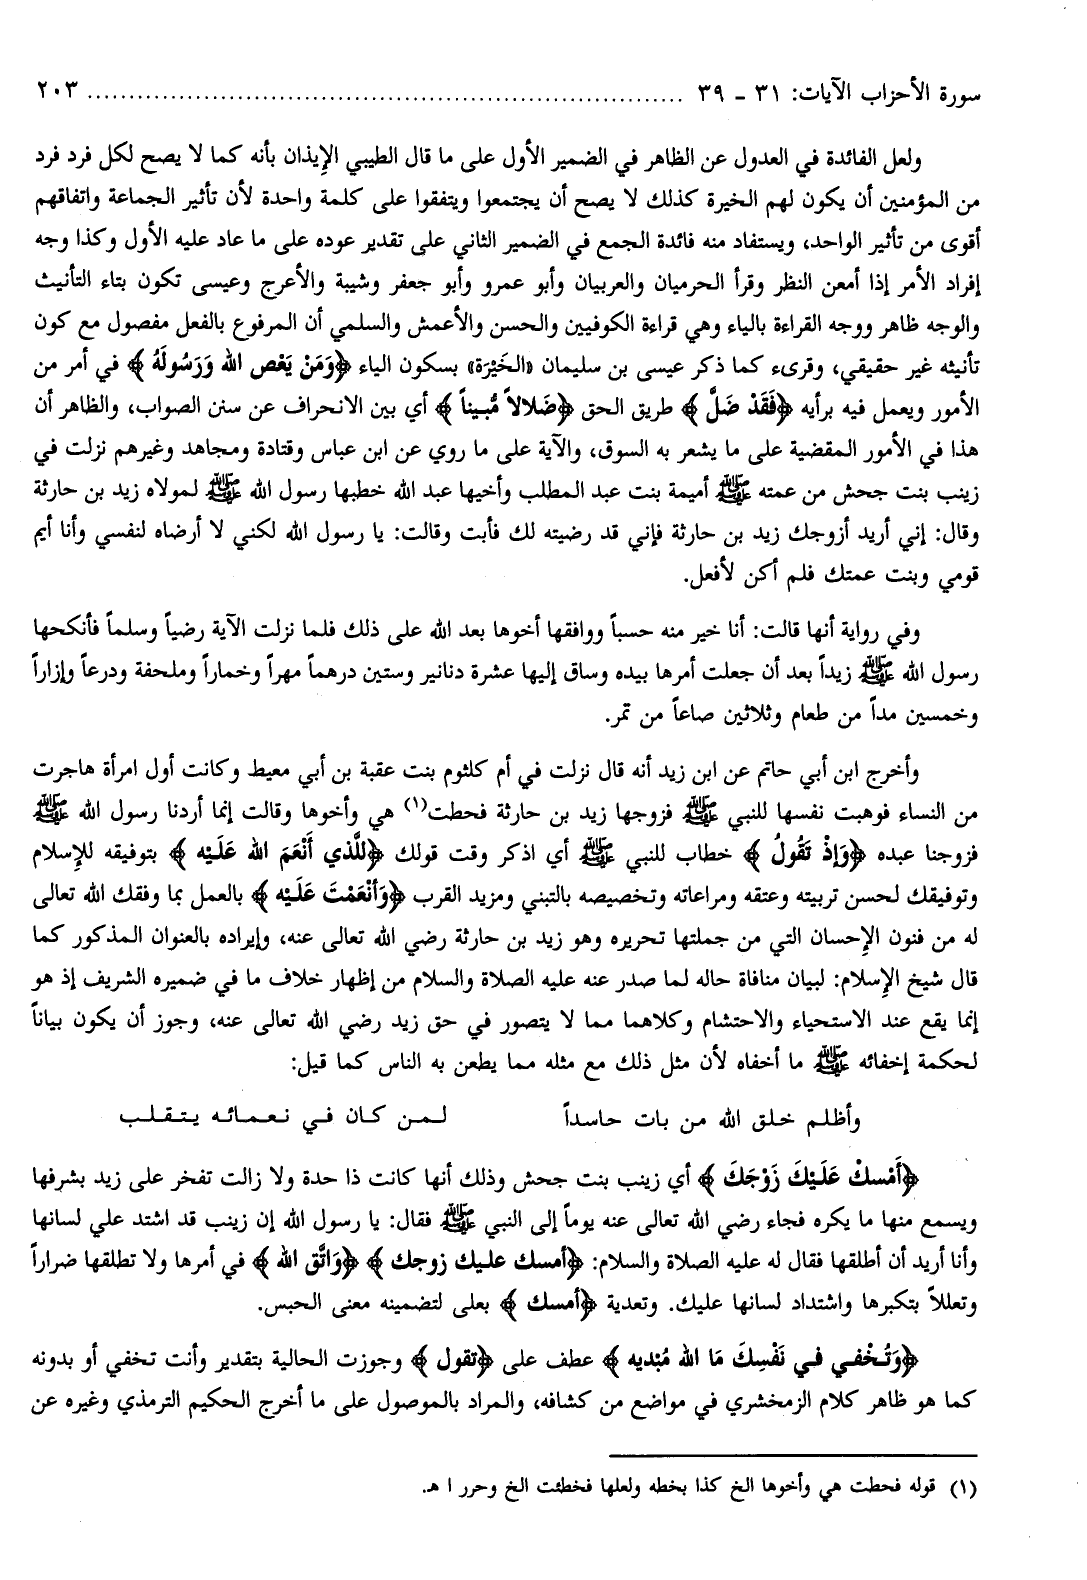 سورة الأحزاب الآيات: ٣١ - ٣٩ ........................................................................ ٢٠٣
ولعل الفائدة في العدول عن الظاهر في الضمير الأول على ما قال الطيبي الإيذان بأنه كما لا يصح لكل فرد فرد
من المؤمنين أن يكون لهم الخيرة كذلك لا يصح أن يجتمعوا ويتفقوا على كلمة واحدة لأن تأثير الجماعة واتفاقهم
أقوى من تأثير الواحد، ويستفاد منه فائدة الجمع في الضمير الثاني على تقدير عوده على ما عاد عليه الأول وكذا وجه
إفراد الأمر إذا أمعن النظر وقرأ الحرميان والعربيان وأبو عمرو وأبو جعفر وشيبة والأعرج وعيسى تكون بتاء التأنيث
والوجه ظاهر ووجه القراءة بالياء وهي قراءة الكوفيين والحسن والأعمش والسلمي أن المرفوع بالفعل مفصول مع كون
تأنيثه غير حقيقي، وقرىء كما ذكر عيسى بن سليمان «الخَيْرَة» بسكون الياء ﴿وَمَنْ يَعْص الله وَرَسُولَهُ﴾ في أمر من
الأمور ويعمل فيه برأيه ﴿فَقَدْ ضَلَّ﴾ طريق الحق ﴿ضَلالاً مُّبيناً﴾ أي بين الانحراف عن سنن الصواب، والظاهر أن
هذا في الأمور المقضية على ما يشعر به السوق، والآية على ما روي عن ابن عباس وقتادة ومجاهد وغيرهم نزلت في
زينب بنت جحش من عمته ﷺ أميمة بنت عبد المطلب وأخيها عبد الله خطبها رسول الله ﷺ لمولاه زيد بن حارثة
وقال: إني أريد أزوجك زيد بن حارثة فإني قد رضيته لك فأبت وقالت: يا رسول الله لكني لا أرضاه لنفسي وأنا أيم
قومي وبنت عمتك فلم أكن لأفعل.
وفي رواية أنها قالت: أنا خير منه حسباً ووافقها أخوها بعد الله على ذلك فلما نزلت الآية رضياً وسلماً فأنكحها
رسول الله ﷺ زيداً بعد أن جعلت أمرها بيده وساق إليها عشرة دنانير وستين درهماً مهراً وخماراً وملحفة ودرعاً وإزاراً
وخمسين مداً من طعام وثلاثين صاعاً من تمر.
وأخرج ابن أبي حاتم عن ابن زيد أنه قال نزلت في أم كلثوم بنت عقبة بن أبي معيط وكانت أول امرأة هاجرت
من النساء فوهبت نفسها للنبي ﷺ فزوجها زيد بن حارثة فحطت(١) هي وأخوها وقالت إنما أردنا رسول الله ﷺ
فزوجنا عبده ﴿وَإذْ تَقُولُ﴾ خطاب للنبي ﷺ أي اذكر وقت قولك ﴿للَّذي أَنْعَمَ الله عَلَيْه﴾ بتوفيقه للإسلام
وتوفيقك لحسن تربيته وعتقه ومراعاته وتخصيصه بالتبني ومزيد القرب ﴿وَأنْعَمْتَ عَلَيْه﴾ بالعمل بما وفقك الله تعالى
له من فنون الإحسان التي من جملتها تحريره وهو زيد بن حارثة رضي الله تعالى عنه، وإيراده بالعنوان المذكور كما
قال شيخ الإسلام: لبيان منافاة حاله لما صدر عنه عليه الصلاة والسلام من إظهار خلاف ما في ضميره الشريف إذ هو
إنما يقع عند الاستحياء والاحتشام وكلاهما مما لا يتصور في حق زيد رضي الله تعالى عنه، وجوز أن يكون بياناً
لحكمة إخفائه ﷺ ما أخفاه لأن مثل ذلك مع مثله مما يطعن به الناس كما قيل:
وأظلم خلق الله من بات حاسداً لمن كان في نعمائه يتقلب
﴿أَمْسكْ عَلَيْكَ زَوْجَكَ﴾ أي زينب بنت جحش وذلك أنها كانت ذا حدة ولا زالت تفخر على زيد بشرفها
ويسمع منها ما يكره فجاء رضي الله تعالى عنه يوماً إلى النبي ﷺ فقال: يا رسول الله إن زينب قد اشتد علي لسانها
وأنا أريد أن أطلقها فقال له عليه الصلاة والسلام: ﴿أمسك عليك زوجك﴾ ﴿وَاتَّق الله﴾ في أمرها ولا تطلقها ضراراً
وتعللاً بتكبرها واشتداد لسانها عليك. وتعدية ﴿أمسك﴾ بعلى لتضمينه معنى الحبس.
﴿وَتُخْفي في نَفْسِكَ مَا الله مُبْديه﴾ عطف على ﴿تقول﴾ وجوزت الحالية بتقدير وأنت تخفي أو بدونه
كما هو ظاهر كلام الزمخشري في مواضع من كشافه، والمراد بالموصول على ما أخرج الحكيم الترمذي وغيره عن
(١) قوله فحطت هي وأخوها الخ كذا بخطه ولعلها فخطئت الخ وحرر ا هـ.